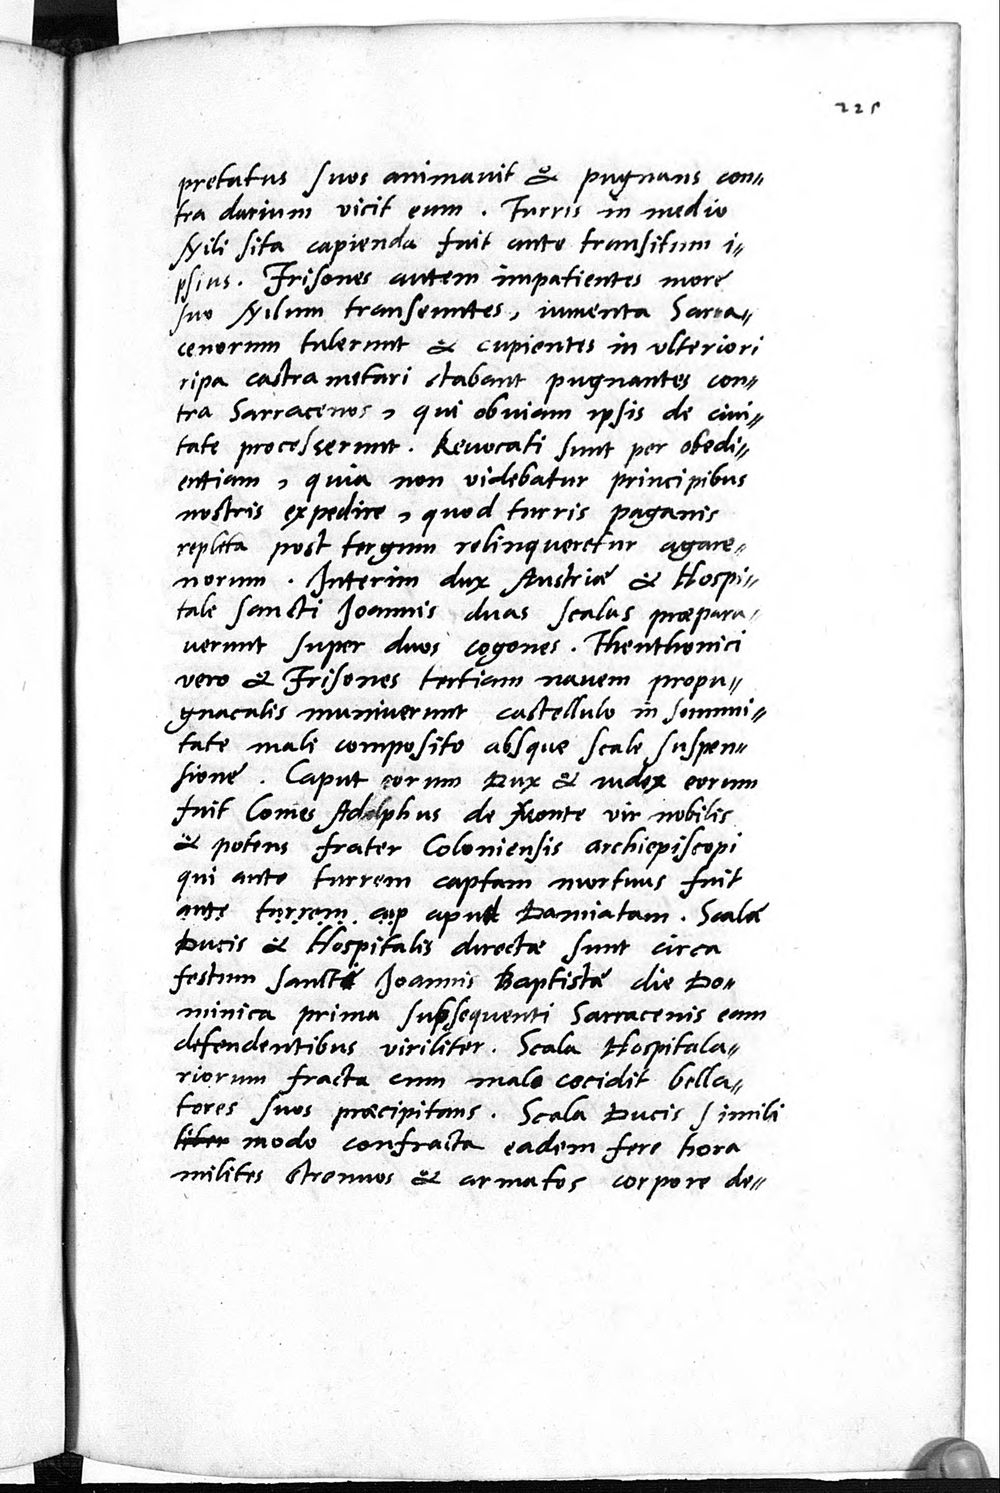 225
pretatus suos animavit & pugnans con„
tra darium vicit eum . Turris in medio
Nili sita capienda fuit ante transitum i„
psius . Frisones autem impatientes more
suo Nilum transeuntes, iumenta Sarra„
cenorum tulerunt & cupientes in ulteriori
ripa castra metari stabant pugnantes con„
tra Sarracenos, qui obuiam ipsis de ciui„
tate processerunt . Reuocati sunt per obedi„
entiam, quia non videbatur principibus
nostris expedire, quod turris paganis
repleta post tergum relinqueretur agare„
norum . Interim dux Austriæ & Hospi„
tale sancti Joannis duas scalas præpara„
uerunt super duos cogones . Thenthonici
vero & Frisones tertiam nauem propu„
gnacalis muniuerunt castellulo in summi„
tate mali composito absque scale suspen„
sione . Caput eorum Dux & iudex eorum
fuit Comes Adolphus de Monte vir nobilis
& potens frater Coloniensis archiepiscopi
qui ante turrem captam mortuus fuit
ante turrem cap apud Damiatam . Scalæ
Ducis & Hospitalis directæ sunt circa
festum sancti Joannis Baptistæ die Do„
minica prima subsequenti Sarracenis eam
defendentibus viriliter . Scala Hospitala„
riorum fracta cum malo cecidit bella„
tores suos præcipitans . Scala Ducis simili
liber modo confracta eadem fere hora
milites strenuos & armatos corpore de„